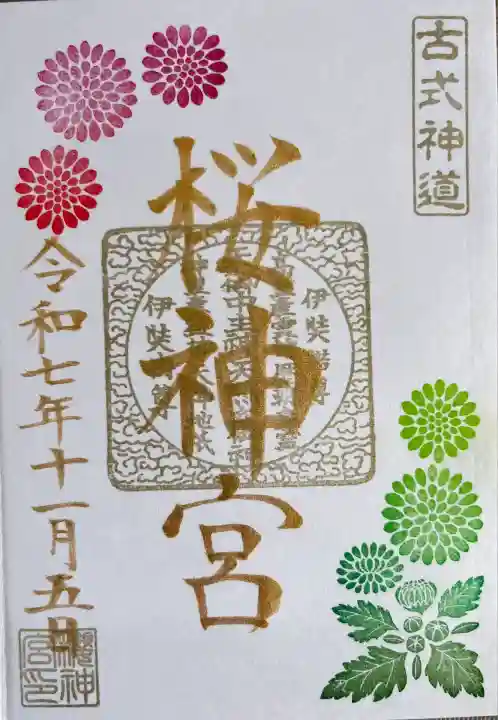 古式神道
桜神宮
伊奘諾尊
令和七年十一月五日
櫻神宮印